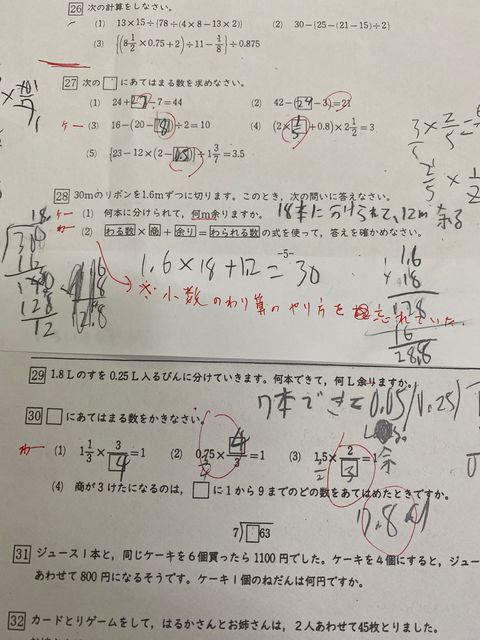 26 次の計算をしなさい。
(1) 13×15÷{78÷(4×8−13×2)} (2) 30−{25−(21−15)÷2}
(3) {(8 1/2×0.75+2)÷11−1/8}÷0.875
27 次の□にあてはまる数を求めなさい。
(1) 24+27−7=44 (2) 42−(24−3)=21
ケー (3) 16−(20−8)÷2=10 (4) (2×1/5+0.8)×2 1/2=3
(5) {23−12×(2−0.5)}÷1 3/7=3.5
28 30mのリボンを1.6mずつに切ります。このとき、次の問いに答えなさい。
ケー (1) 何本に分けられて、何m余りますか。 18本に分けられて、12m余る
(2) わる数×商+余り=わられる数の式を使って、答えを確かめなさい。
−5−
1.6×18+12=30
※小数のわり算のやり方を忘れていた。
1.6
×18
128
16
28.8
29 1.8Lのすを0.25L入るびんに分けていきます。何本できて、何L余りますか。
7本できて0.05
余
30 □にあてはまる数をかきなさい。
(1) 1 1/3×3/4=1 (2) 0.75×4/3=1 (3) 1.5×2/3=1
(4) 商が3けたになるのは、□に1から9までのどの数をあてはめたときですか。
7.8
7)□63
31 ジュース1本と、同じケーキを6個買ったら1100円でした。ケーキを4個にすると、ジュー
あわせて800円になるそうです。ケーキ1個のねだんは何円ですか。
32 カードとりゲームをして、はるかさんとお姉さんは、2人あわせて45枚とりました。